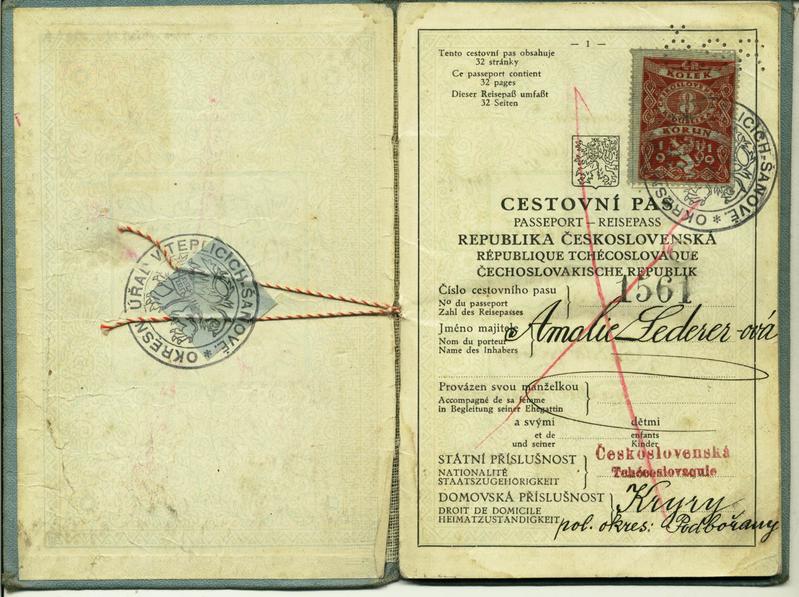 OKRESNÍ ÚŘAD V TEPLICICH-ŠANOVĚ. *
— 1 —
Tento cestovní pas obsahuje
32 stránky
Ce passeport contient
32 pages
Dieser Reisepaß umfaßt
32 Seiten
KOLEK
8
KORUN
OKRESNÍ TEPLICICH-ŠANOVĚ. *
CESTOVNÍ PAS
PASSEPORT – REISEPASS
REPUBLIKA ČESKOSLOVENSKÁ
RÉPUBLIQUE TCHÉCOSLOVAQUE
ČECHOSLOVAKISCHE REPUBLIK
Číslo cestovního pasu
No du passeport
Zahl des Reisepasses
1561
Jméno majitele
Nom du porteur
Name des Inhabers
Amalie Lederer-ová
Provázen svou manželkou
Accompagné de sa femme
in Begleitung seiner Ehegattin
a svými dětmi
et de enfants
und seiner Kinder
STÁTNÍ PŘÍSLUŠNOST
NATIONALITÉ
STAATSZUGEHÖRIGKEIT
Československá
Tchécoslovaquie
DOMOVSKÁ PŘÍSLUŠNOST
DROIT DE DOMICILE
HEIMATZUSTÄNDIGKEIT
Kryry
pol. okres: Podbořany